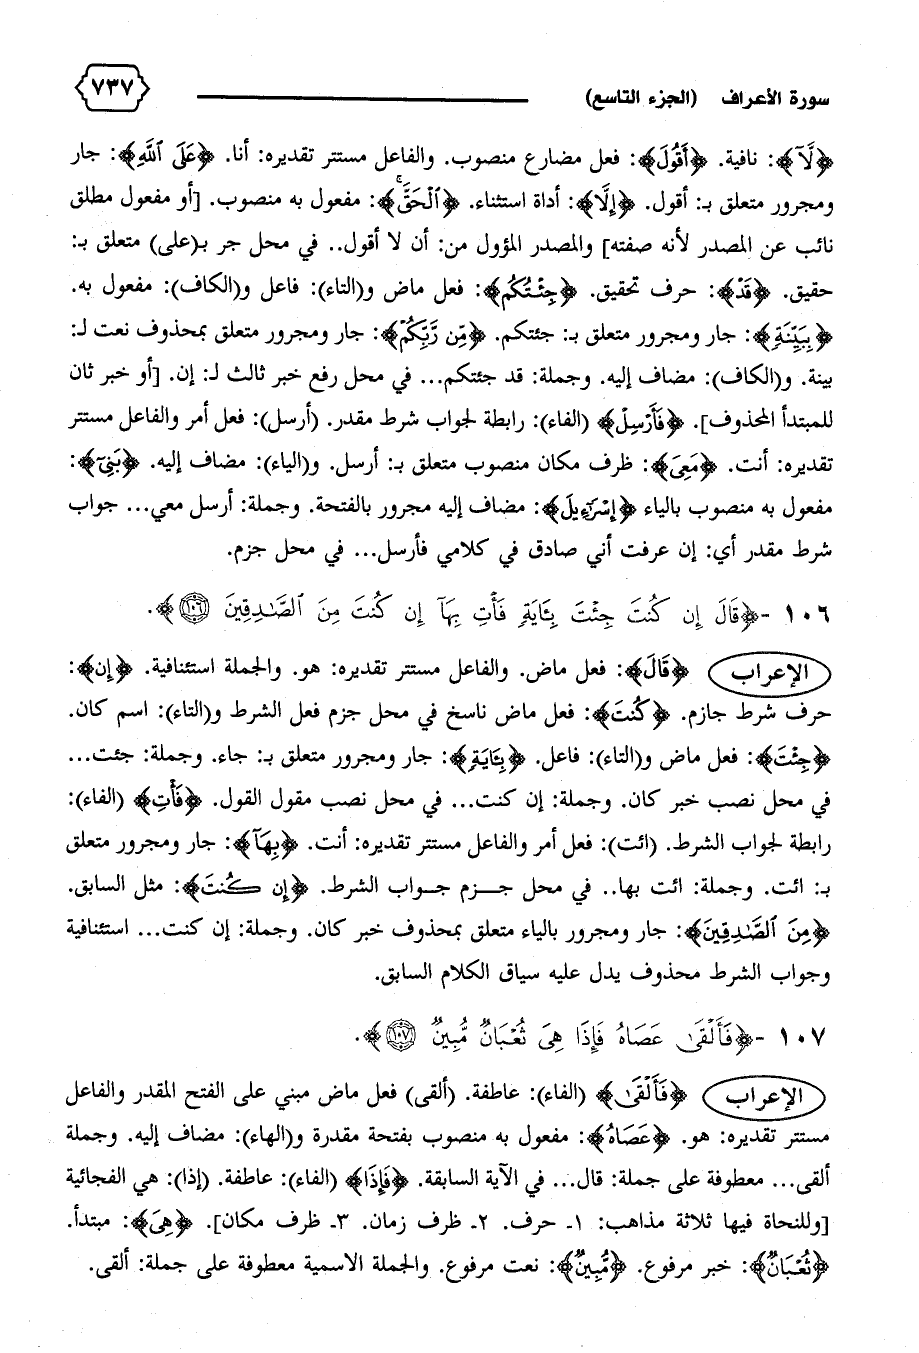 سورة الأعراف (الجزء التاسع) ٧٣٧
﴿لَّآ﴾: نافية. ﴿أَقُولَ﴾: فعل مضارع منصوب. والفاعل مستتر تقديره: أنا. ﴿عَلَى ٱللَّهِ﴾: جار
ومجرور متعلق بـ: أقول. ﴿إِلَّا﴾: أداة استثناء. ﴿ٱلْحَقَّۚ﴾: مفعول به منصوب. [أو مفعول مطلق
نائب عن المصدر لأنه صفته] والمصدر المؤول من: أن لا أقول.. في محل جر بـ(على) متعلق بـ:
حقيق. ﴿قَدْ﴾: حرف تحقيق. ﴿جِئْتُكُم﴾: فعل ماض و(التاء): فاعل و(الكاف): مفعول به.
﴿بِبَيِّنَةٍ﴾: جار ومجرور متعلق بـ: جئتكم. ﴿مِّن رَّبِّكُمْ﴾: جار ومجرور متعلق بمحذوف نعت لـ:
بينة. و(الكاف): مضاف إليه. وجملة: قد جئتكم... في محل رفع خبر ثالث لـ: إن. [أو خبر ثان
للمبتدأ المحذوف]. ﴿فَأَرْسِلْ﴾ (الفاء): رابطة لجواب شرط مقدر. (أرسل): فعل أمر والفاعل مستتر
تقديره: أنت. ﴿مَعِىَ﴾: ظرف مكان منصوب متعلق بـ: أرسل. و(الياء): مضاف إليه. ﴿بَنِىٓ﴾:
مفعول به منصوب بالياء ﴿إِسْرَٰٓءِيلَ﴾: مضاف إليه مجرور بالفتحة. وجملة: أرسل معي... جواب
شرط مقدر أي: إن عرفت أني صادق في كلامي فأرسل... في محل جزم.
١٠٦ -﴿قَالَ إِن كُنتَ جِئْتَ بِـَٔايَةٍ فَأْتِ بِهَآ إِن كُنتَ مِنَ ٱلصَّـٰدِقِينَ ١٠٦﴾.
الإعراب ﴿قَالَ﴾: فعل ماض. والفاعل مستتر تقديره: هو. والجملة استئنافية. ﴿إِن﴾:
حرف شرط جازم. ﴿كُنتَ﴾: فعل ماض ناسخ في محل جزم فعل الشرط و(التاء): اسم كان.
﴿جِئْتَ﴾: فعل ماض و(التاء): فاعل. ﴿بِـَٔايَةٍ﴾: جار ومجرور متعلق بـ: جاء. وجملة: جئت...
في محل نصب خبر كان. وجملة: إن كنت... في محل نصب مقول القول. ﴿فَأْتِ﴾ (الفاء):
رابطة لجواب الشرط. (ائت): فعل أمر والفاعل مستتر تقديره: أنت. ﴿بِهَآ﴾: جار ومجرور متعلق
بـ: ائت. وجملة: ائت بها.. في محل جزم جواب الشرط. ﴿إِن كُنتَ﴾: مثل السابق.
﴿مِنَ ٱلصَّـٰدِقِينَ﴾: جار ومجرور بالياء متعلق بمحذوف خبر كان. وجملة: إن كنت... استئنافية
وجواب الشرط محذوف يدل عليه سياق الكلام السابق.
١٠٧ -﴿فَأَلْقَىٰ عَصَاهُ فَإِذَا هِىَ ثُعْبَانٌ مُّبِينٌ ١٠٧﴾.
الإعراب ﴿فَأَلْقَىٰ﴾ (الفاء): عاطفة. (ألقى) فعل ماض مبني على الفتح المقدر والفاعل
مستتر تقديره: هو. ﴿عَصَاهُ﴾: مفعول به منصوب بفتحة مقدرة و(الهاء): مضاف إليه. وجملة
ألقى... معطوفة على جملة: قال... في الآية السابقة. ﴿فَإِذَا﴾ (الفاء): عاطفة. (إذا): هي الفجائية
[وللنحاة فيها ثلاثة مذاهب: ١- حرف. ٢- ظرف زمان. ٣- ظرف مكان]. ﴿هِىَ﴾: مبتدأ.
﴿ثُعْبَانٌ﴾: خبر مرفوع. ﴿مُّبِينٌ﴾: نعت مرفوع. والجملة الاسمية معطوفة على جملة: ألقى.